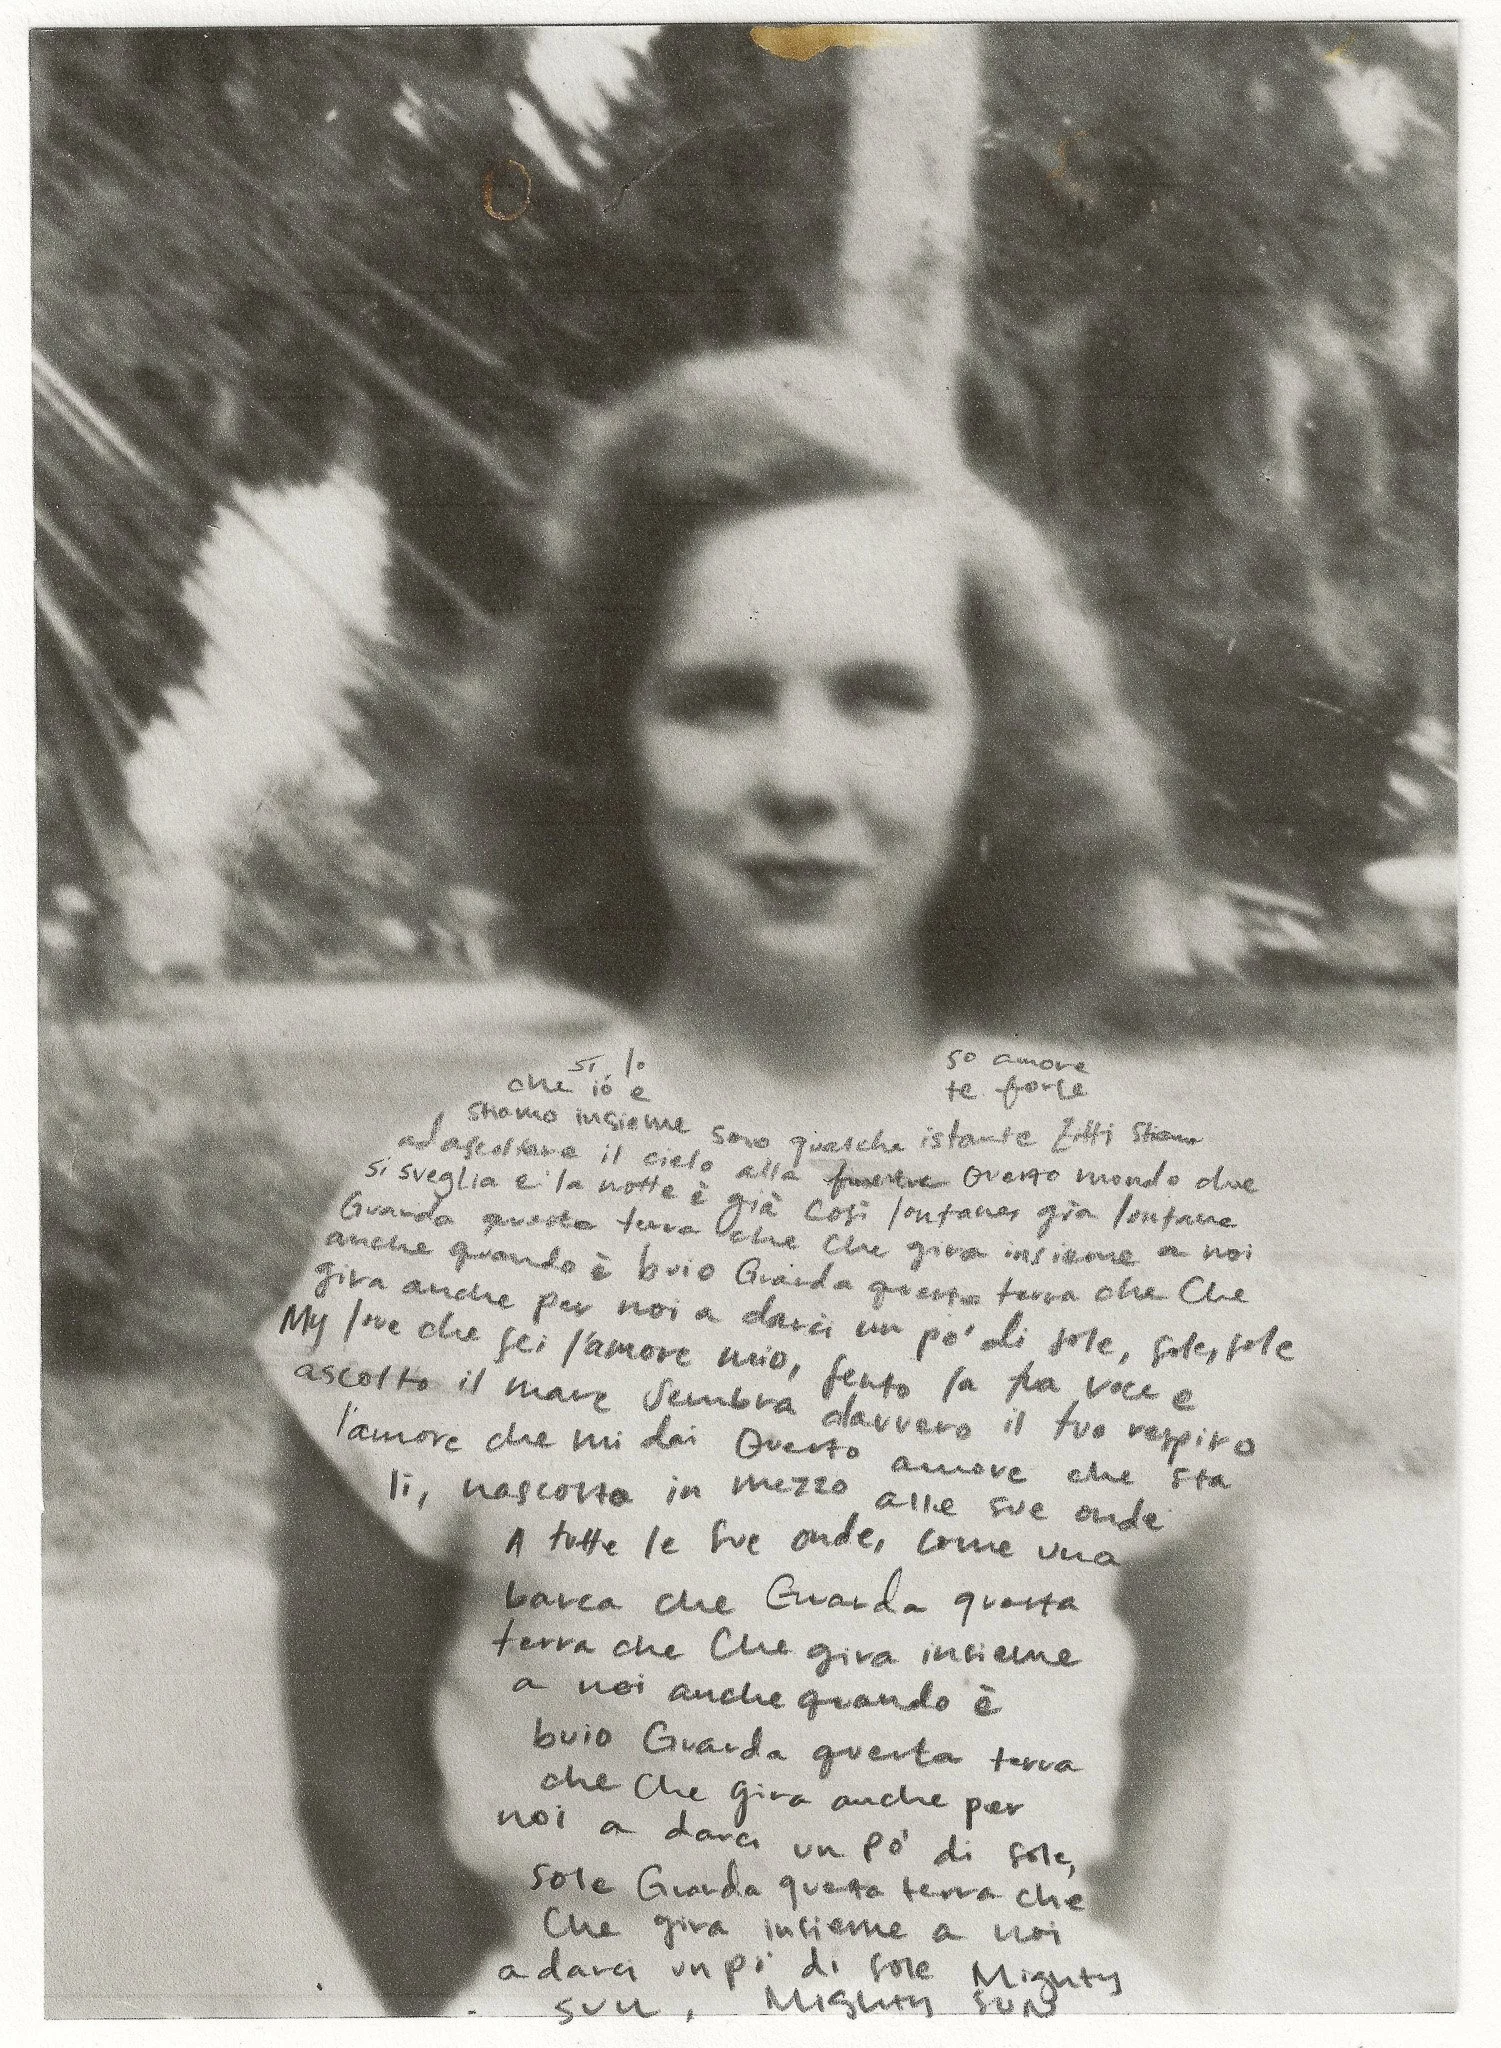 si lo so amore
che io e te forse
stiamo insieme sono qualche istante Zitti stiamo
ad ascoltare il cielo alla finestra Questo mondo che
si sveglia e la notte è già così lontana, già lontana
Guarda questa terra che Che gira insieme a noi
anche quando è buio Guarda questa terra che Che
gira anche per noi a darci un po' di sole, sole, sole
My love che sei l'amore mio, sento la tua voce e
ascolto il mare Sembra davvero il tuo respiro
l'amore che mi dai Questo amore che sta
lì, nascosto in mezzo alle sue onde
A tutte le sue onde, come una
barca che Guarda questa
terra che Che gira insieme
a noi anche quando è
buio Guarda questa terra
che Che gira anche per
noi a darci un po' di sole,
sole Guarda questa terra che
Che gira insieme a noi
a darci un po' di sole Mighty
sun, Mighty sun